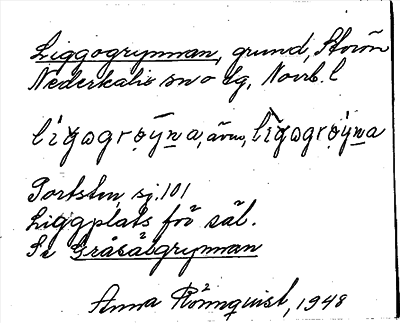 Liggogrynnan, grund, Storön
Nederkalix sn o tg, Norrb. l
lìgogrøýna, även, lìgogrøýna
Portsten, sj. 101
Liggplats för säl.
Se Gråsälsgrynnan
Anna Rönnquist, 1948